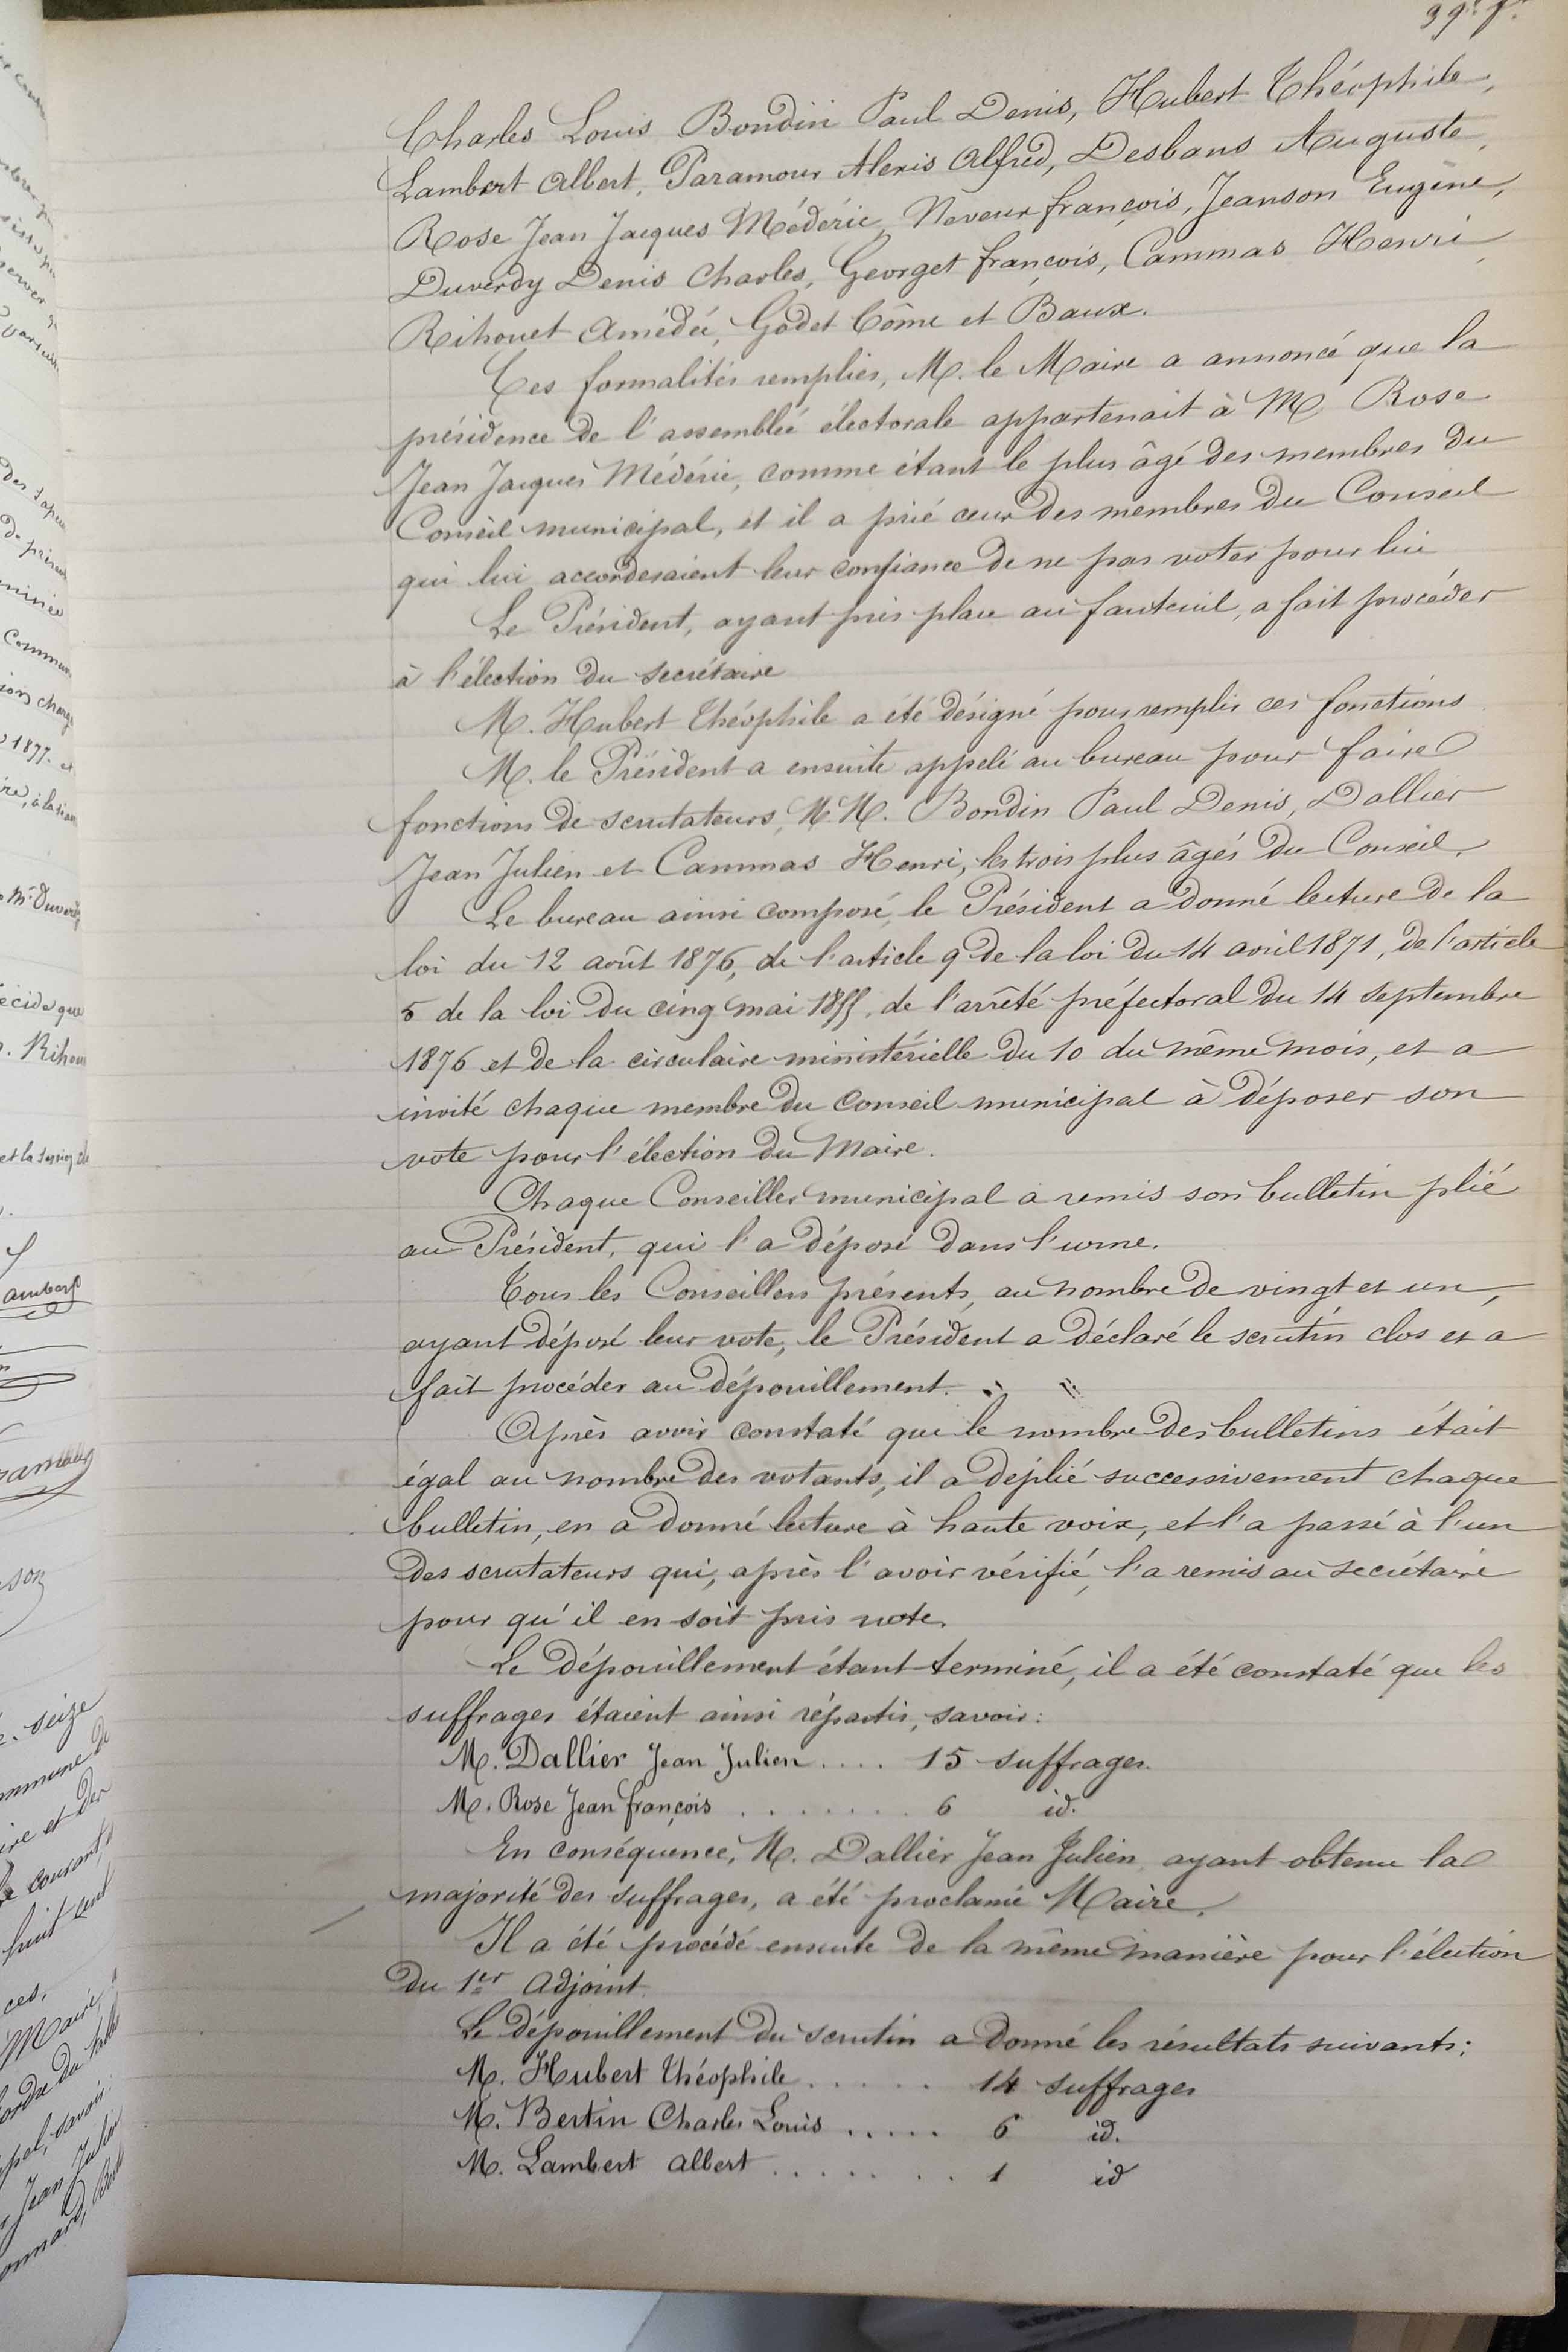 Charles Louis Bondin Paul Denis, Hubert Théophile,
Lambert Albert, Paramour Alexis Alfred, Desbans Auguste,
Rose Jean Jacques Médéric, Neveur françois, Jeanson Eugène,
Duverdy Denis Charles, Georget françois, Cammas Henri,
Rihouet Amédée, Godet Côme et Baux.
Ces formalités remplies, M. le Maire a annoncé que la
présidence de l'assemblée électorale appartenait à M. Rose
Jean Jacques Médéric, comme étant le plus âgé des membres du
Conseil municipal, et il a prié ceux des membres du Conseil
qui lui accorderaient leur confiance de ne pas voter pour lui
Le Président, ayant pris place au fauteuil, a fait procéder
à l'élection du secrétaire
M. Hubert Théophile a été désigné pour remplir ces fonctions
M. le Président a ensuite appelé au bureau pour faire
fonctions de scrutateurs, M.M. Bondin Paul Denis, Dallier
Jean Julien et Cammas Henri, les trois plus âgés du Conseil.
Le bureau ainsi composé, le Président a donné lecture de la
loi du 12 août 1876, de l'article 9 de la loi du 14 avril 1871, de l'article
5 de la loi du cinq mai 1855, de l'arrêté préfectoral du 14 septembre
1876 et de la circulaire ministérielle du 10 du même mois, et a
invité chaque membre du Conseil municipal à déposer son
vote pour l'élection du Maire.
Chaque Conseiller municipal a remis son bulletin plié
au Président, qui l'a déposé dans l'urne.
Tous les Conseillers présents, au nombre de vingt et un,
ayant déposé leur vote, le Président a déclaré le scrutin clos et a
fait procéder au dépouillement.
Après avoir constaté que le nombre des bulletins était
égal au nombre des votants, il a déplié successivement chaque
bulletin, en a donné lecture à haute voix, et l'a passé à l'un
des scrutateurs qui, après l'avoir vérifié, l'a remis au secrétaire
pour qu'il en soit pris note.
Le dépouillement étant terminé, il a été constaté que les
suffrages étaient ainsi répartis, savoir:
M. Dallier Jean Julien .... 15 suffrages.
M. Rose Jean françois ....... 6 id.
En conséquence, M. Dallier Jean Julien, ayant obtenu la
majorité des suffrages, a été proclamé Maire.
Il a été procédé ensuite de la même manière pour l'élection
du 1er Adjoint.
Le dépouillement du scrutin a donné les résultats suivants:
M. Hubert Théophile ...... 14 suffrages
M. Bertin Charles Louis ..... 6 id.
M. Lambert Albert ....... 1 id